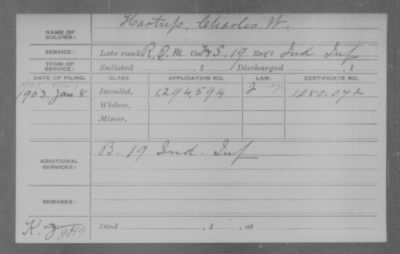 NAME OF SOLDIER: Hartup, Charles W.
SERVICE: Late rank R.Q.M. Co. F&S, 19 Reg't Ind Inf
TERM OF SERVICE: Enlisted , 1 | Discharged , 1
DATE OF FILING. CLASS. APPLICATION NO. LAW. CERTIFICATE NO.
1903 Jan 8 Invalid, 1,294,594 1,080,072
Widow,
Minor,
ADDITIONAL SERVICES: B. 19 Ind. Inf
REMARKS:
Died , 1 , at